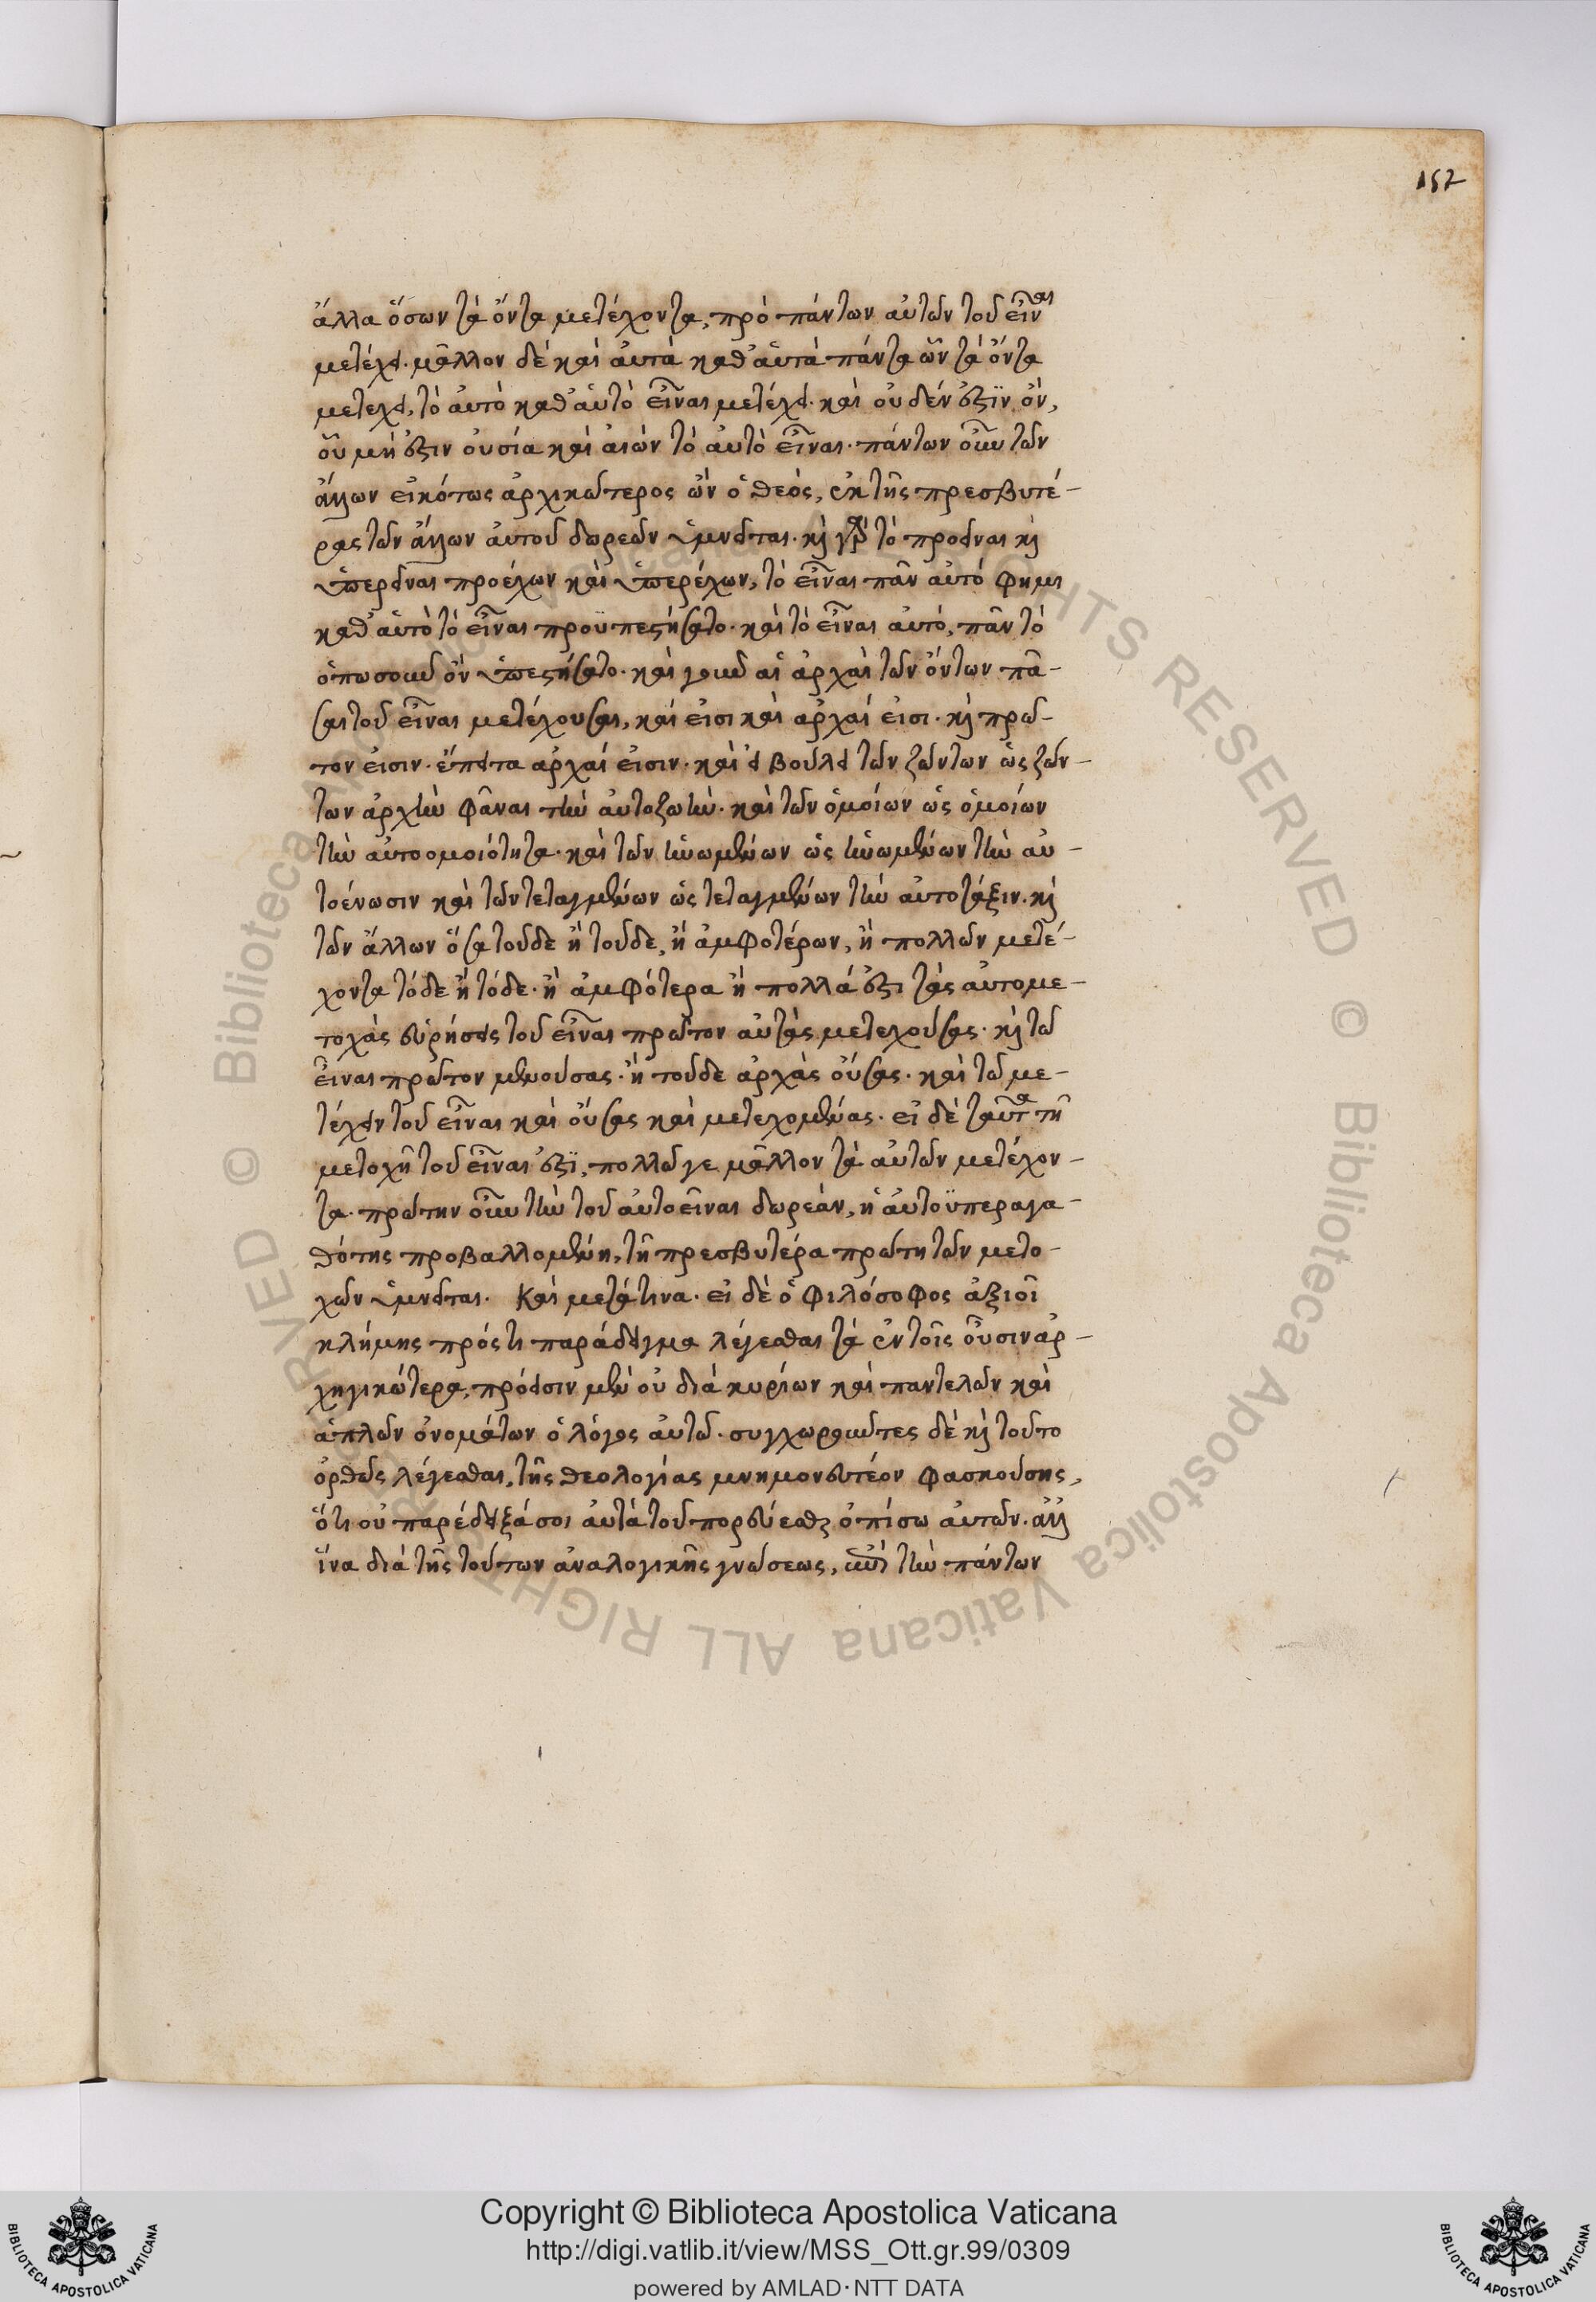 152
ἄλλα ὅσων τὰ ὄντα μετέχοντα, πρὸ πάντων αὐτῶν τοῦ εἶναι
μετέχει. μᾶλλον δὲ καὶ αὐτὰ καθ' αὑτὰ πάντα ὧν τὰ ὄντα
μετέχει, τὸ αὐτὸ καθ' αὑτὸ εἶναι μετέχει. καὶ οὐδέν ἐστϊν ὂν,
οὗ μή ἐστιν οὐσία καὶ αἰὼν τὸ αὐτὸ εἶναι. πάντων οὖν τῶν
ἄλλων εἰκότως ἀρχικώτερος ὢν ὁ θεὸς, ἐκ τῆς πρεσβυτέ-
ρας τῶν ἄλλων αὐτοῦ δωρεῶν ὑμνεῖται. καὶ γὰρ τὸ προεῖναι καὶ
ὑπερεῖναι προέχων καὶ ὑπερέχων, τὸ εἶναι πᾶν αὐτό φημι
καθ' αὑτὸ τὸ εἶναι προϋπεστήσατο. καὶ τὸ εἶναι αὐτό, πᾶν τὸ
ὁπωσοῦν ὂν ὑπεστήσατο. καὶ γοῦν αἱ ἀρχαὶ τῶν ὄντων πᾶ-
σαι τοῦ εἶναι μετέχουσαι, καί εἰσι καὶ ἀρχαί εἰσι. καὶ πρῶ-
τον εἰσιν. ἔπειτα ἀρχαί εἰσιν. καὶ εἰ βούλει τῶν ζώντων ὡς ζών-
των ἀρχὴν φᾶναι τὴν αὐτοζωὴν. καὶ τῶν ὁμοίων ὡς ὁμοίων
τὴν αὐτοομοιότητα. καὶ τῶν ἡνωμένων ὡς ἡνωμένων τὴν αὐ-
τοένωσιν καὶ τῶν τεταγμένων ὡς τεταγμένων τὴν αὐτοτάξιν. καὶ
τῶν ἄλλων ὅσα τοῦδε ἢ τοῦδε, ἢ ἀμφοτέρων, ἢ πολλῶν μετέ-
χοντα τόδε ἢ τόδε. ἢ ἀμφότερα ἢ πολλά ἐστι τὰς αὐτομε-
τοχὰς εὑρήσεις τοῦ εἶναι πρῶτον αὐτὰς μετεχούσας. καὶ τῶ
εἶναι πρῶτον μενούσας. ἢ τοῦδε ἀρχὰς οὔσας. καὶ τῶ με-
τέχειν τοῦ εἶναι καὶ οὔσας καὶ μετεχομένας. εἰ δὲ ταῦτα τῆ
μετοχῆ τοῦ εἶναι ἐστϊ, πολλῶ γε μᾶλλον τὰ αὐτῶν μετέχον-
τα. πρώτην οὖν τὴν τοῦ αὐτοεῖναι δωρεὰν, ἡ αὐτοϋπεραγα-
θότης προβαλλομένη, τῆ πρεσβυτέρα πρώτη τῶν μετο-
χῶν ὑμνεῖται. Καὶ μετάτινα. εἰ δὲ ὁ φιλόσοφος ἀξιοῖ
κλήμης πρός τι παράδειγμα λέγεσθαι τὰ ἐν τοῖς οὖσιν ἀρ-
χηγικώτερα, πρόεισιν μὲν οὐ διὰ κυρίων καὶ παντελῶν καὶ
ἁπλῶν ὀνομάτων ὁ λόγος αὐτῶ. συγχωροῦντες δὲ καὶ τοῦτο
ὀρθῶς λέγεσθαι, τῆς θεολογίας μνημονευτέον φασκούσης,
ὅτι οὐ παρέδειξά σοι αὐτὰ τοῦ πορεύεσθαι ὀπίσω αὐτῶν. ἀλλ'
ἵνα διὰ τῆς τούτων ἀναλογικῆς γνώσεως, ἐπὶ τὴν πάντων
Copyright © Biblioteca Apostolica Vaticana
http://digi.vatlib.it/view/MSS_Ott.gr.99/0309
powered by AMLAD·NTT DATA